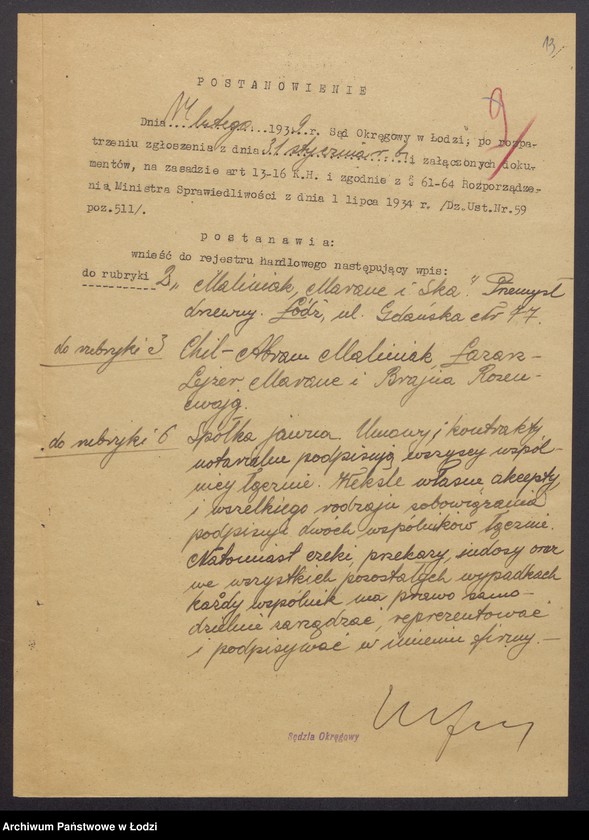 13.
9
POSTANOWIENIE
Dnia 14 lutego 1939 r. Sąd Okręgowy w Łodzi, po rozpa-
trzeniu zgłoszenia z dnia 31 stycznia i załączonych doku-
mentów, na zasadzie art 13-16 K.H. i zgodnie z § 61-64 Rozporządze-
nia Ministra Sprawiedliwości z dnia 1 lipca 1934 r. /Dz.Ust.Nr.59
poz.511/.
postanawia:
wnieść do rejestru handlowego następujący wpis:
do rubryki 2 „Maliniak, Maranc i Ska." Przemysł
drzewny. Łódź, ul. Gdańska Nr 77.
do rubryki 3 Chil-Abram Maliniak, Łazarz-
Lejzer Maranc i Brajna Rozen-
cwajg.
do rubryki 6 Spółka jawna. Umowy i kontrakty
notarialne podpisują wszyscy wspól-
nicy łącznie. Weksle własne akcepty
i wszelkiego rodzaju zobowiązania
podpisują dwóch wspólników łącznie.
Natomiast czeki, przekazy, indosy oraz
we wszystkich pozostałych wypadkach
każdy wspólnik ma prawo samo-
dzielnie zarządzać, reprezentować
i podpisywać w imieniu firmy. —
Sędzia Okręgowy
Archiwum Państwowe w Łodzi